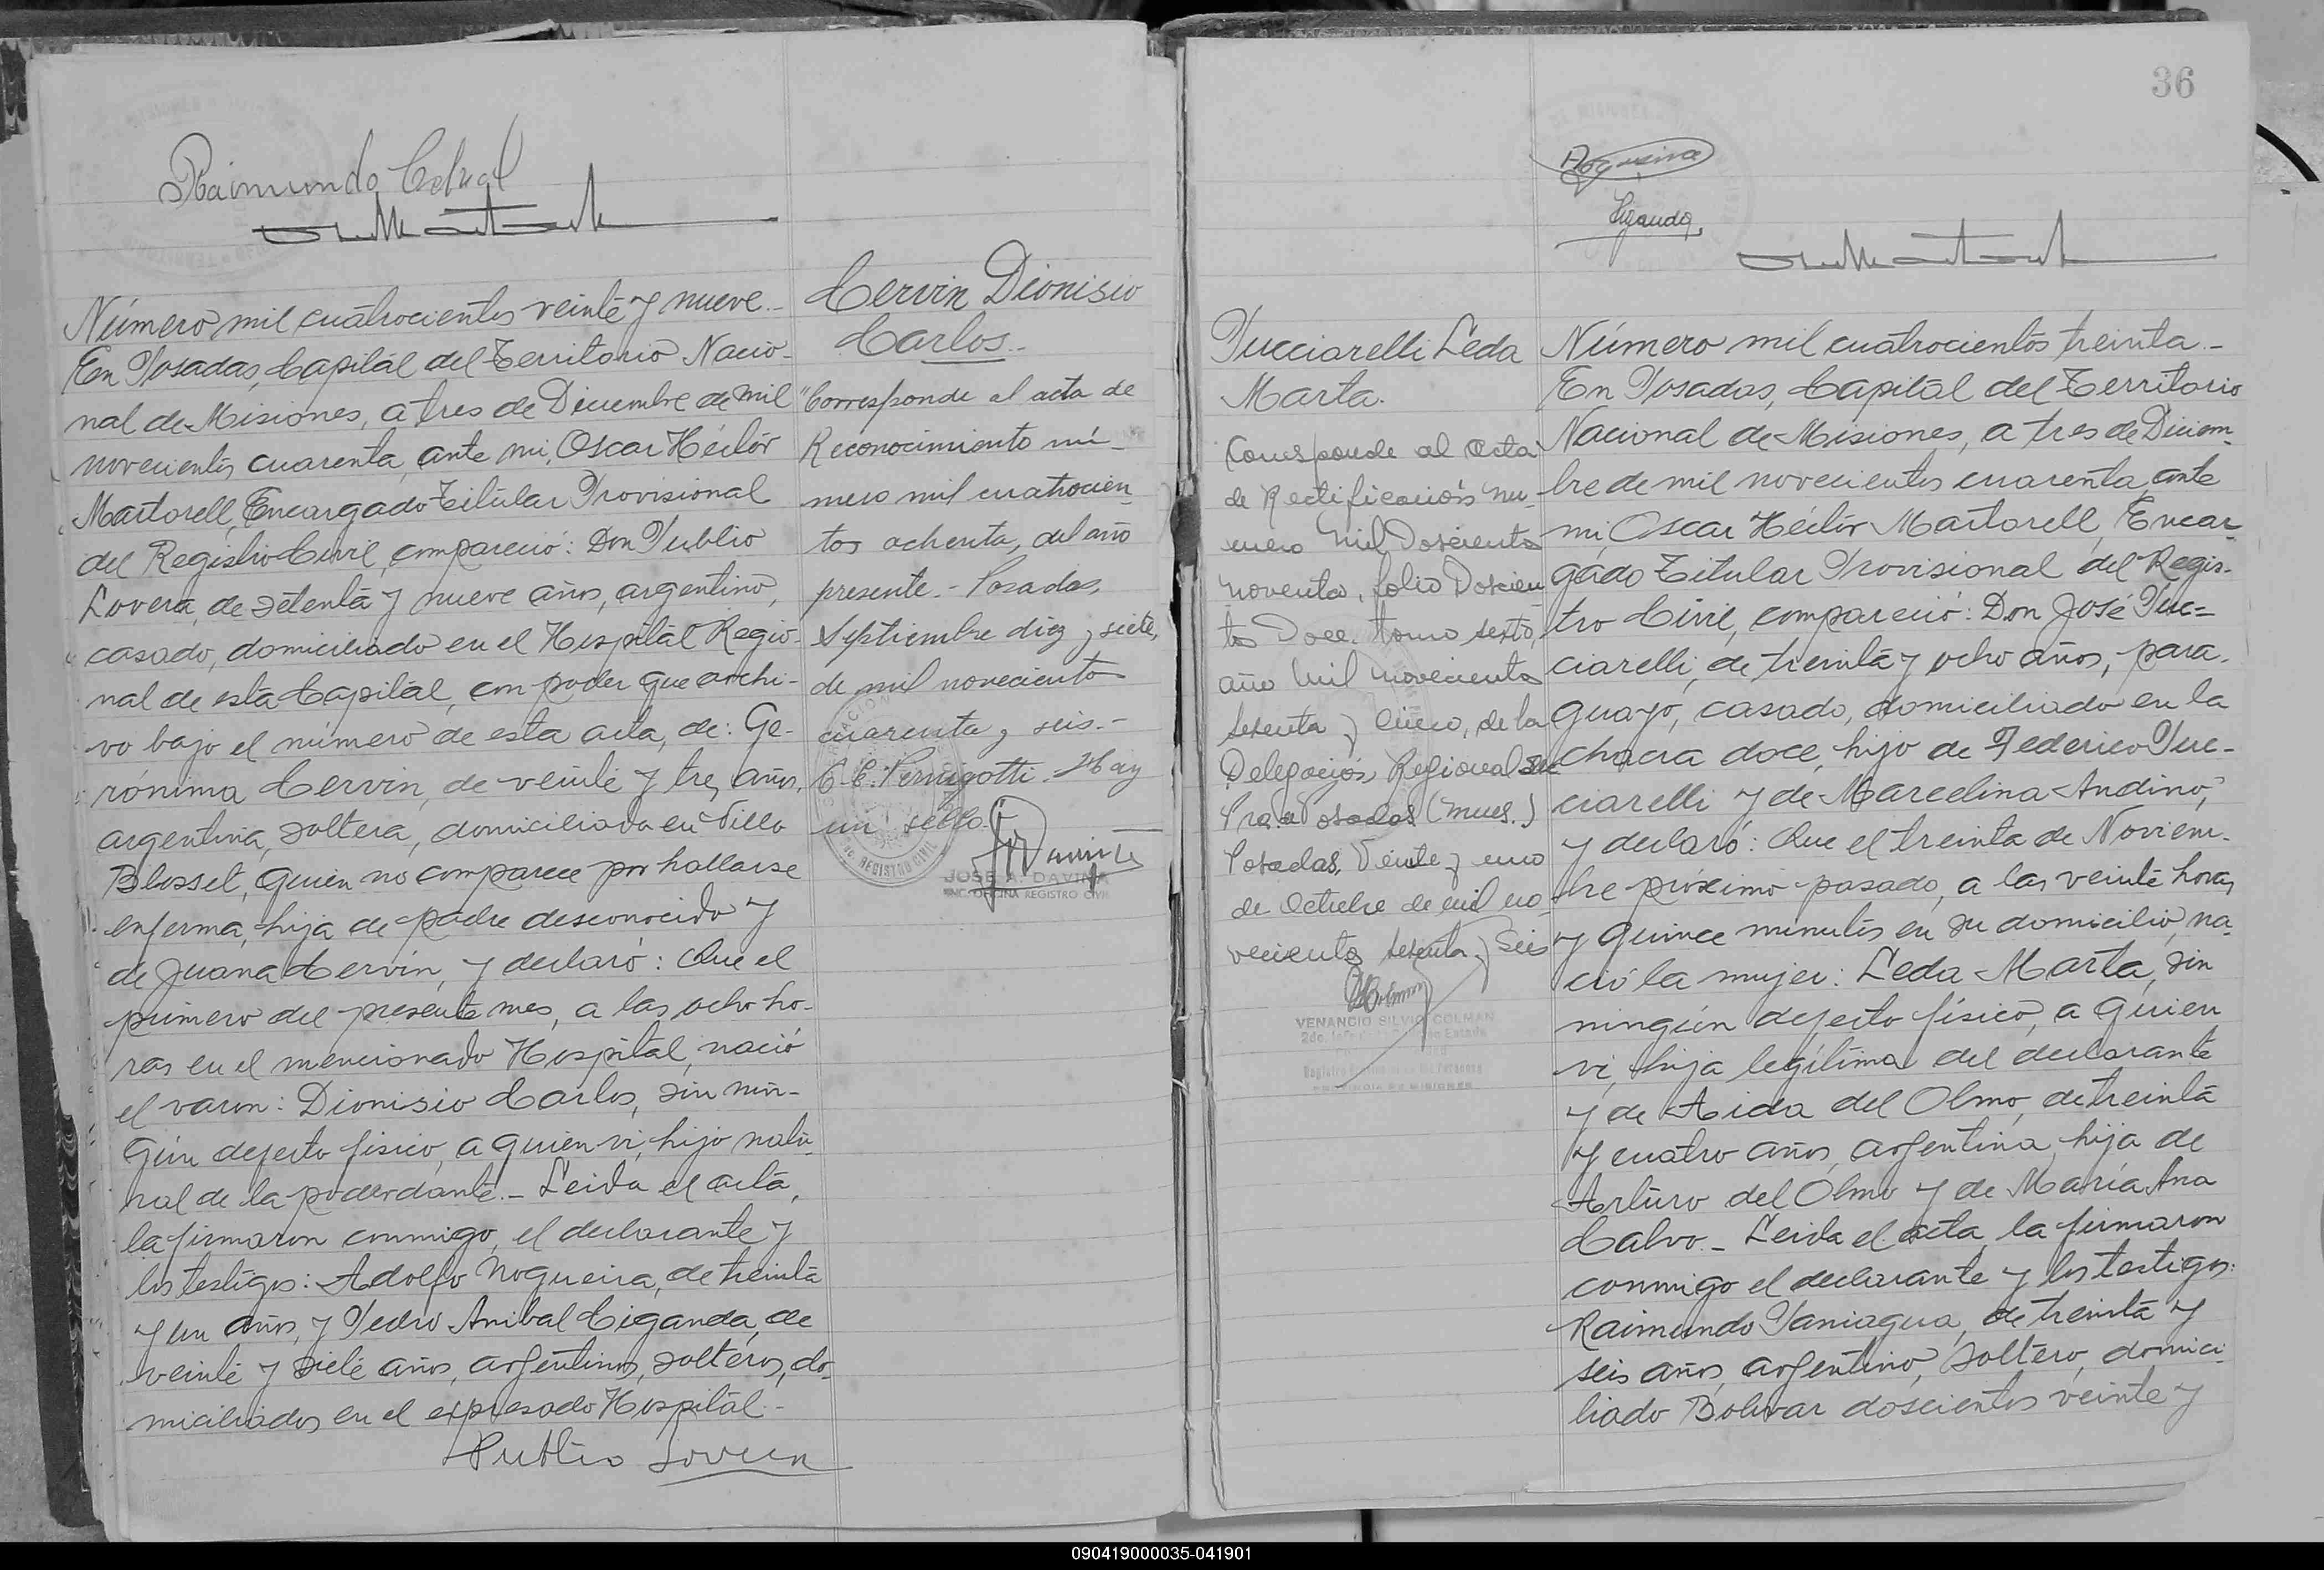 Raimundo Cabral
Número mil cuatrocientos veinte y nueve.-
En Posadas, Capital del Territorio Nacio-
nal de Misiones, a tres de Diciembre de mil
novecientos cuarenta, ante mi, Oscar Héctor
Martorell, Encargado Titular Provisional
del Registro Civil, compareció: Don Publio
Lovera, de setenta y nueve años, argentino,
casado, domiciliado en el Hospital Regio-
nal de esta Capital, con poder que archi-
vo bajo el número de esta acta, de: Ge-
rónima Cervin, de veinte y tres años,
argentina, soltera, domiciliada en Villa
Blosset, quien no comparece por hallarse
enferma, hija de padre desconocido y
de Juana Cervin, y declaró: Que el
primero del presente mes, a las ocho ho-
ras en el mencionado Hospital, nació
el varon: Dionisio Carlos, sin nin-
gún defecto físico, a quien vi, hijo natu-
ral de la poderdante.- Leida el acta,
la firmaron conmigo, el declarante y
los testigos: Adolfo Nogueira, de treinta
y un años, y Pedro Anibal Ciganda, de
veinte y siete años, argentinos, solteros, do-
miciliados en el expresado Hospital.-
Publio Lovera
Cervin Dionisio
Carlos.-
"Corresponde al acta de
Reconocimiento nú-
mero mil cuatrocien-
tos ochenta, del año
presente.- Posadas,
Septiembre diez y siete,
de mil novecientos
cuarenta y seis.-
C. C. Pernigotti. Hay
un sello.
REGISTRO CIVIL
JOSE A. DAVIÑA
ENC. OFICINA REGISTRO CIVIL
36
Nogueira
Ciganda
Pucciarelli Leda
Marta.
Corresponde al Acta
de Rectificación nu-
mero Mil Doscientos
noventa, folio Doscien
tos Doce. tomo sexto,
año Mil novecientos
setenta y cinco, de la
Delegación Regional
Pra. Posadas (Mnes.)
Posadas, Veinte y uno
de Octubre de mil no-
vecientos setenta y Seis
VENANCIO SILVIO COLMAN
PROVINCIA DE MISIONES
Número mil cuatrocientos treinta.-
En Posadas, Capital del Territorio
Nacional de Misiones, a tres de Diciem-
bre de mil novecientos cuarenta, ante
mi, Oscar Héctor Martorell, Encar-
gado Titular Provisional del Regis-
tro Civil, compareció: Don José Puc-
ciarelli, de treinta y ocho años, para-
guayo, casado, domiciliado en la
chacra doce, hijo de Federico Puc-
ciarelli y de Marcelina Andino,
y declaró: Que el treinta de Noviem-
bre próximo pasado, a las veinte horas
y quince minutos en su domicilio, na-
ció la mujer: Leda Marta, sin
ningún defecto físico, a quien
vi, hija legítima del declarante
y de Aida del Olmo, de treinta
y cuatro años, argentina, hija de
Arturo del Olmo y de María Ana
Calvo.- Leida el acta, la firmaron
conmigo el declarante y los testigos:
Raimundo Paniagua, de treinta y
seis años, argentino, soltero, domici-
liado Bolivar doscientos veinte y
090419000035-041901